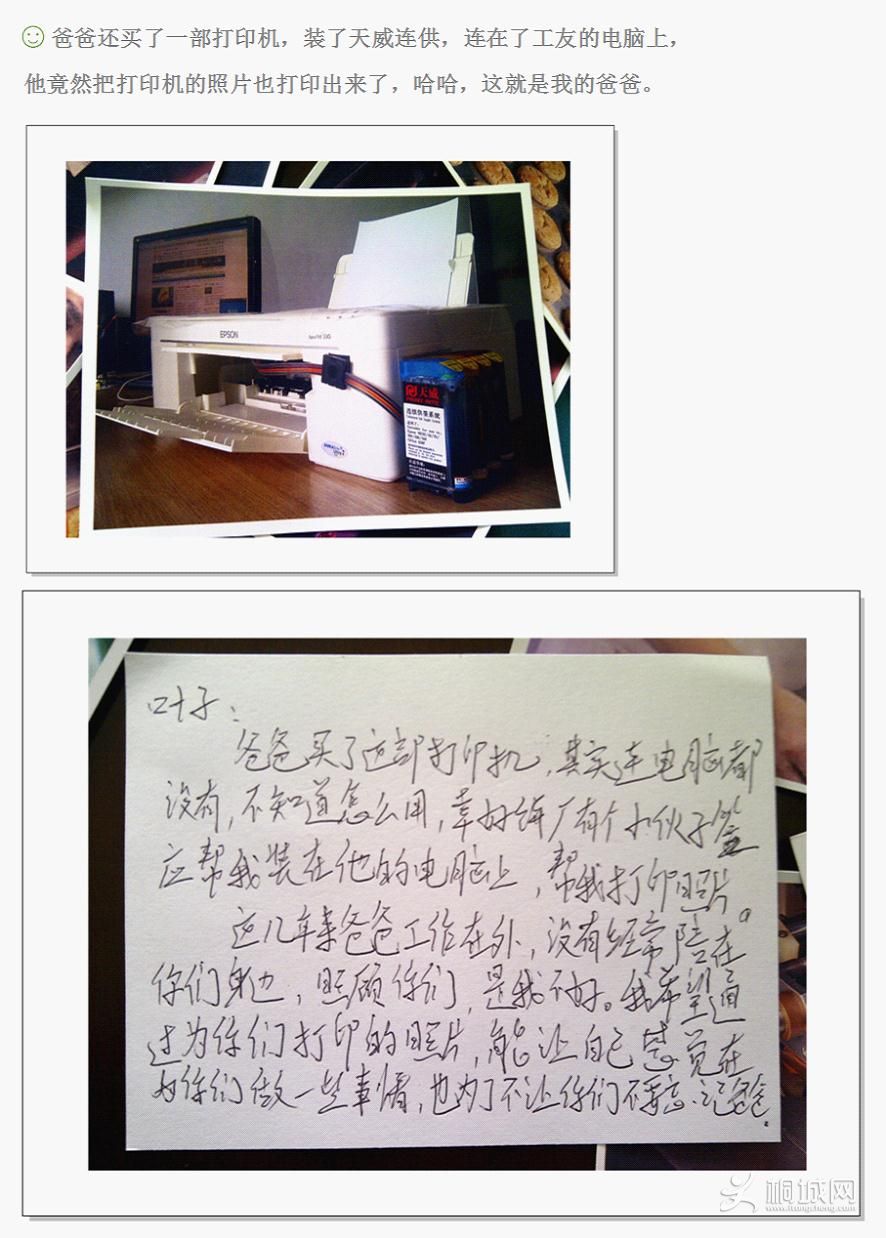 爸爸还买了一部打印机，装了天威连供，连在了工友的电脑上，
他竟然把打印机的照片也打印出来了，哈哈，这就是我的爸爸。
EPSON
天威
PRINT-RITE
连续供墨系统
叶子：
爸爸买了这部打印机，其实连电脑都
没有，不知道怎么用，幸好鞋厂有个小伙子答
应帮我装在他的电脑上，帮我打印照片。
这几年来爸爸工作在外，没有经常陪在
你们身边，照顾你们，是我不好。我希望通
过为你们打印的照片，能让自己感觉在
为你们做一些事情，也为了不让你们不要忘记爸爸。
桐城网
www.itongcheng.com